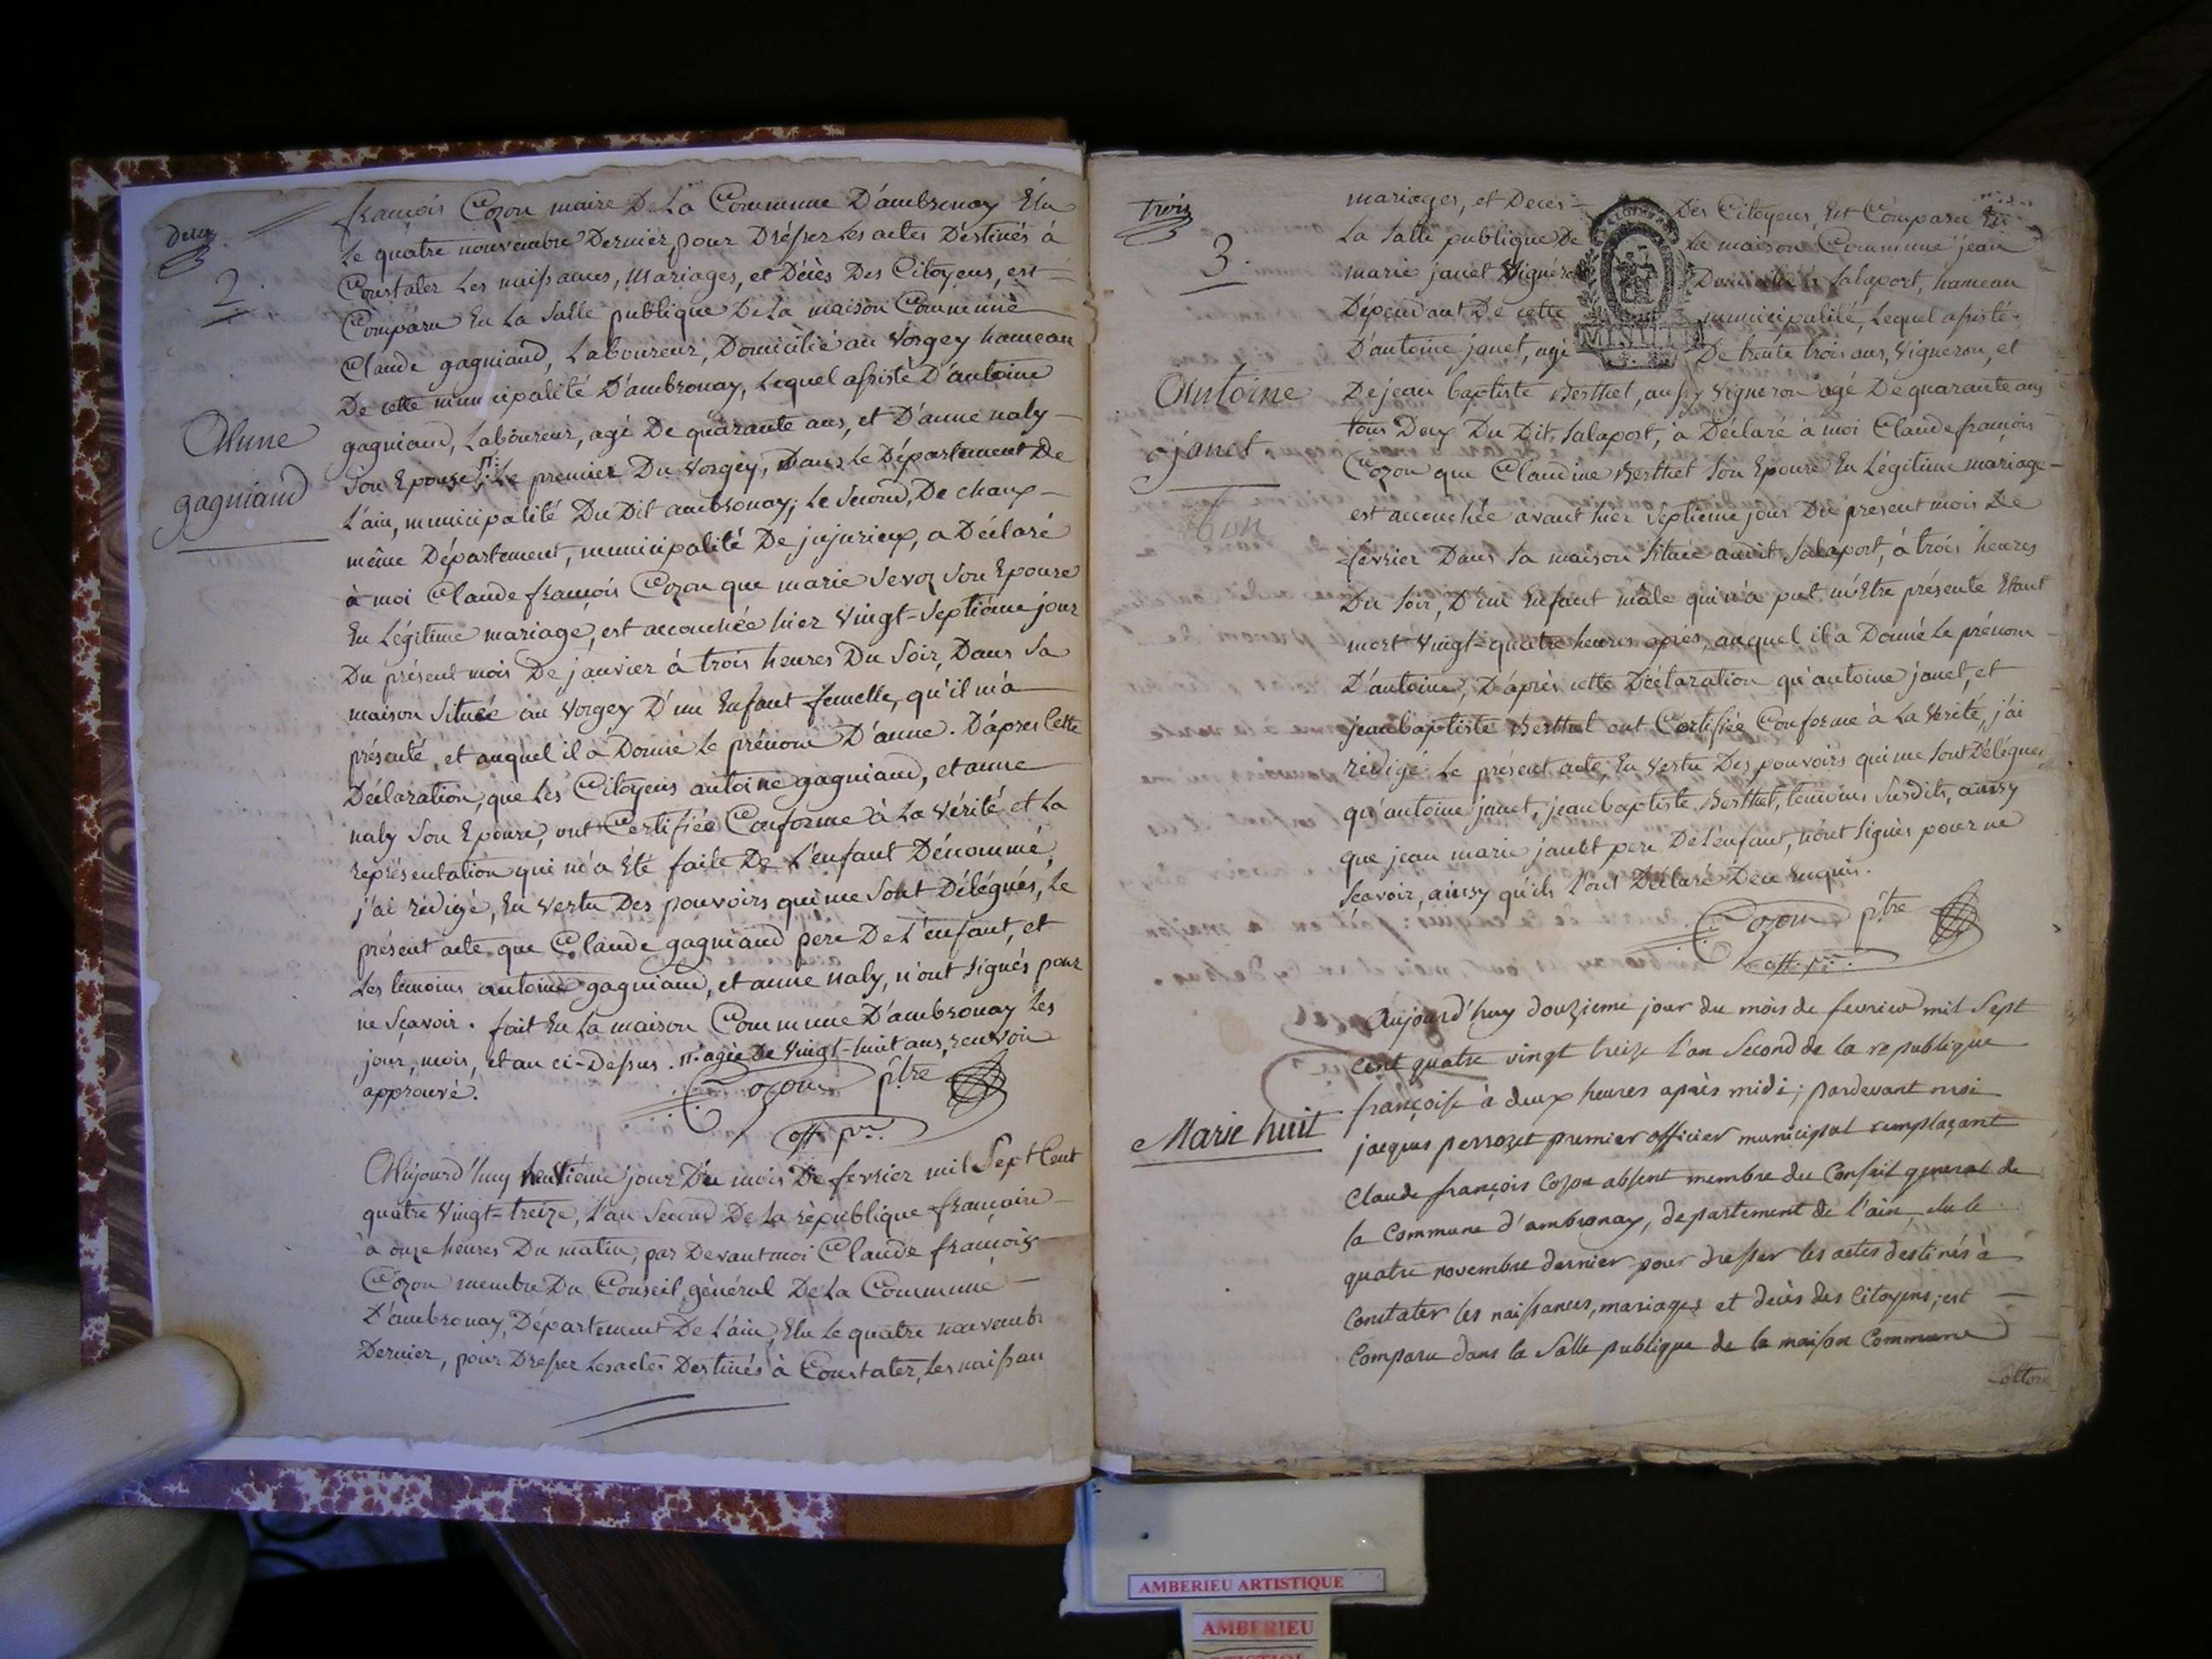 Deux
2.
françois Cozon maire De La Commune D'ambronay Élu
le quatre nouvembre Dernier pour Drésser les actes Déstinés à
Constater les naissances, Mariages, et Décès Des Citoyens, est
Comparu En la Salle publique De la maison Commune
Claude gagniand, Laboureur, Domicilié au Vorgey hameau
De cette municipalité D'ambronay, Lequel assisté D'antoine
Anne
gagniand
gagniand, Laboureur, agé De quarante ans, et D'anne naly
Son Epouse, Le premier Du Vorgey, Dans le Département De
L'ain, municipalité Du Dit ambronay; le Second, De chaux
même Département, municipalité De jujurieux, a Déclaré
à moi Claude françois Cozon que marie Sevoz Son Epouse
En Légitime mariage, est accouchée hier Vingt-Septième jour
Du présent mois De janvier à trois heures Du Soir, Dans Sa
maison Située au Vorgey D'un Enfant femelle, qu'il m'a
présenté, et auquel il a Donné le prénom D'anne. D'après Cette
Déclaration, que les Citoyens antoine gagniand, et anne
naly Son Epouse, ont Certifiée Conforme à La Vérité et La
représentation qui m'a Été faite De L'enfant Dénommé,
j'ai rédigé, En Vertu Des pouvoirs qui me Sont Délégués, le
présent acte que Claude gagniand pere De L'enfant, et
Les temoins antoine gagniand, et anne naly, n'ont Signés pour
ne Sçavoir. fait En la maison Commune D'ambronay les
jour, mois, et an ci-Dessus. agée De Vingt-huit ans, renvoi
approuvé.
Cozon p.tre
off. p.
Aujourd'huy neuvième jour Du mois De fevrier mil Sept Cent
quatre Vingt-treize, l'an Second De la république françaire
à onze heures Du matin, par Devant moi Claude françois
Cozon membre Du Conseil général De La Commune
D'ambronay, Département De L'ain, Elu le quatre nouvemb
Dernier, pour Dresser les actes Destinés à Constater, les naissan
Trois
3.
mariages, et Decès Des Citoyens, Est Comparu
La Salle publique De La maison Commune jean
marie janet Vignéron Domicilié à Salaport, hameau
Dépendant De cette municipalité, Lequel assisté
D'antoine janet, agé De trente trois ans, Vigneron, et
MINUTE
Antoine
janet
De jean baptiste Berthet, aussy Vigneron agé De quarante ans
tous Deux Du Dit Salaport, a Déclaré à moi Claude françois
Cozon que Claudine Berthet Son Epouse En Légitime mariage
est accouchée avant hier Septieme jour Du present mois De
fevrier Dans Sa maison Située audit Salaport, à trois heures
Du Soir, D'un Enfant mâle qui n'a put m'Etre présenté Etant
mort Vingt-quatre heures après, auquel il a Donné le prénom
D'antoine, D'après cette Déclaration qu'antoine janet, et
jean baptiste Berthet ont Certifiée Conforme à La Verité, j'ai
rédigé le présent acte, En Vertu Des pouvoirs qui me Sont Délégues,
qu'antoine janet, jean baptiste Berthet, temoins Susdits, ainsy
que jean marie janet pere De L'enfant, n'ont Signés pour ne
Sçavoir, ainsy qu'ils l'ont Déclaré De ce Enquis.
Cozon p.tre
off. p.
Aujourd'huy douzieme jour du mois de fevrier mil Sept
cent quatre vingt treize l'an Second de la republique
françoise à deux heures après midi; pardevant moi
Marie huit
jacques perrozet premier officier municipal remplaçant
Claude françois Cozon absent membre du Conseil general de
la Commune d'ambronay, departement de l'ain, elu le
quatre novembre dernier pour dresser les actes destinés à
Constater les naissances, mariages et decès des Citoyens; est
Comparu dans la Salle publique de la maison Commune
AMBERIEU ARTISTIQUE
AMBERIEU
ARTISTIQUE